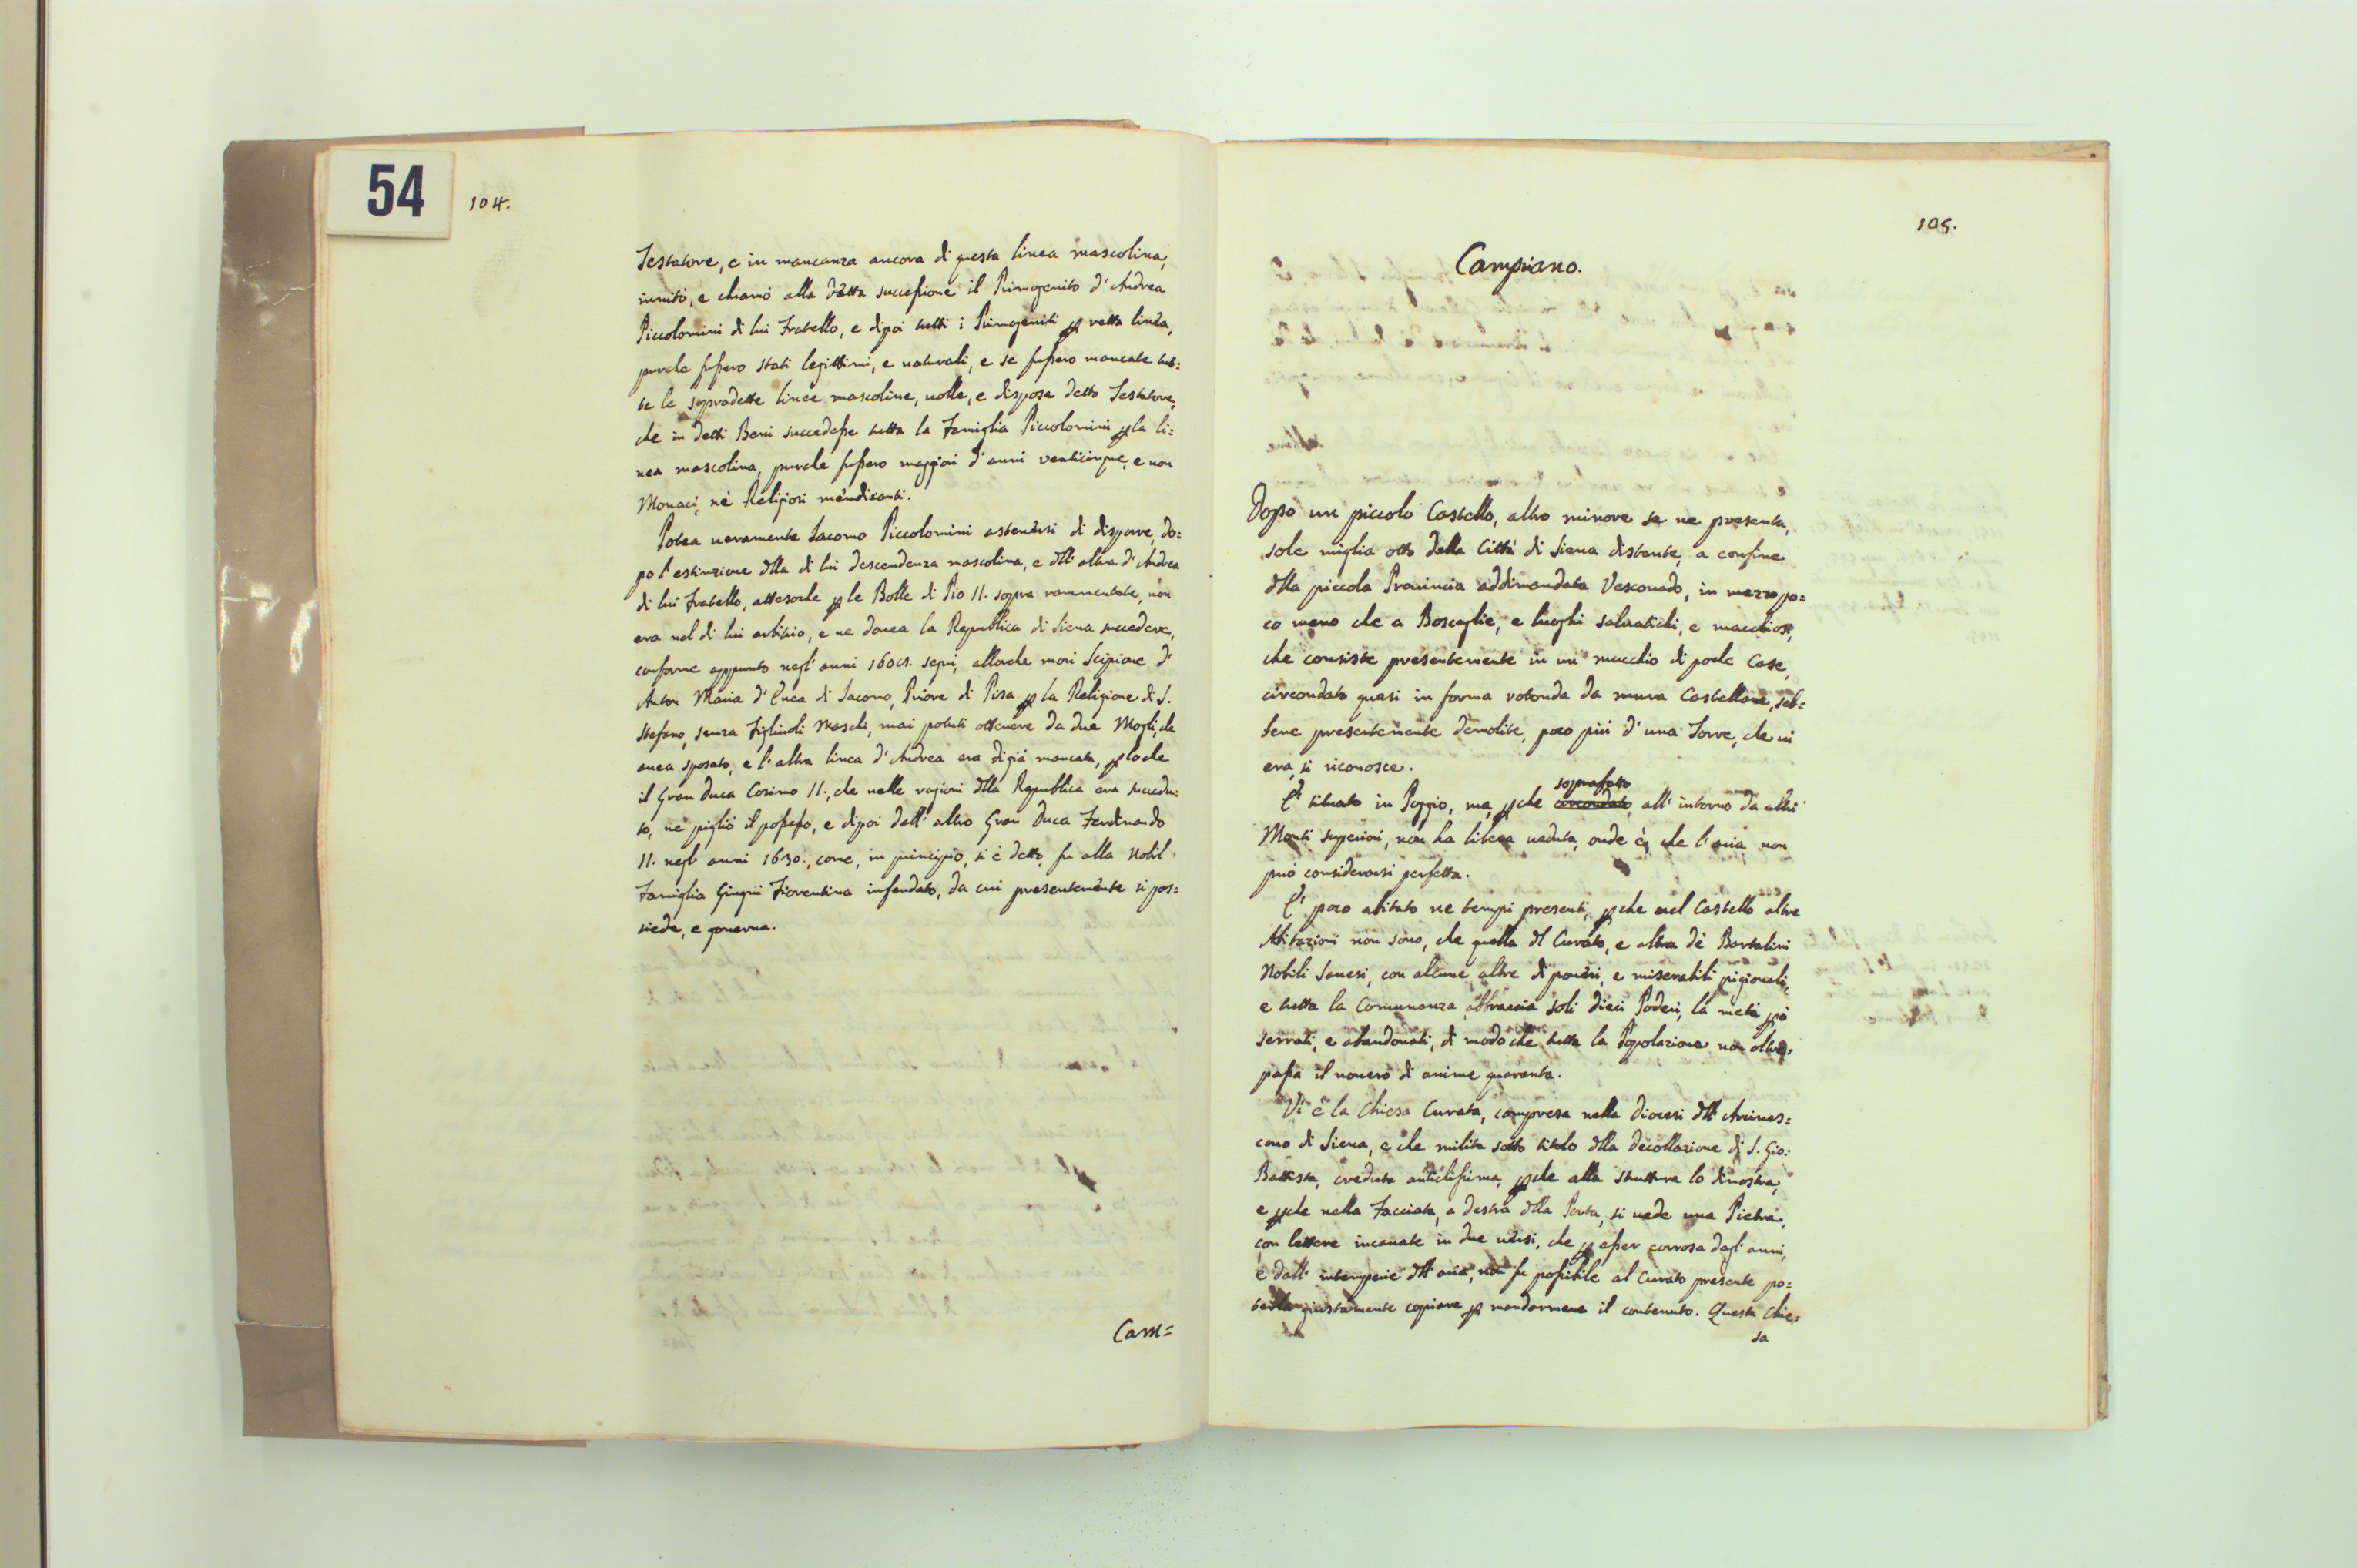 54
104.
Testatore, e in mancanza ancora di questa linea mascolina,
invitò, e chiamò alla detta successione il Primogenito d'Andrea
Piccolomini di lui Fratello, e dipoi tutti i Primogeniti p retta linea,
purche fussero stati legittimi, e naturali, e se fussero mancate tut=
te le sopradette linee mascoline, volle, e dispose detto Testatore,
che in detti Beni succedesse tutta la Famiglia Piccolomini p la li=
nea mascolina, purche fussero maggiori d'anni venticinque, e non
Monaci, nè Religiosi mendicanti.
Potea veramente Iacomo Piccolomini astenersi di disporre, do=
po l'estinzione dlla di lui descendenza mascolina, e dll'altra d'Andrea
di lui Fratello, attesoche p le Bolle di Pio II. sopra rammentate, non
era nel di lui arbitrio, e ne dovea la Republica di Siena succedere,
conforme appunto negl'anni segui, allorche morì Scipione d'
Anton Maria d'Enea di Iacomo, Priore di Pisa p la Religione di S.
Stefano, senza Figliuoli Maschi, mai potuti ottenere da due Mogli, che
avea sposato, e l'altra linea d'Andrea era digià mancata, p loche
il Gran Duca Cosimo II., che nelle ragioni dlla Republica era succedu=
to, ne pigliò il possesso, e dipoi dall'altro Gran Duca Ferdinando
II. negl'anni 1630., come, in principio, si è detto, fu alla Nobil
Famiglia Giugni Fiorentina infeudato, da cui presentemente si pos=
siede, e governa.
Cam=
105.
Campriano.
Dopo un piccolo Castello, altro minore se ne presenta,
sole miglia otto della Città di Siena distante, a confine
dlla piccola Provincia addimandata Vescovado, in mezzo po=
co meno che a Boscaglie, e luoghi salvatichi, e macchiosi,
che consiste presentemente in un mucchio di poche Case,
circondato quasi in forma rotonda da mura Castellane, seb=
bene presentemente demolite, poco più d'una Torre, che vi
era, si riconosce.
soprafatto
È situato in Poggio, ma, pche circondato all'intorno da altri
Monti superiori, non ha libera veduta, onde è, che l'aria non
può considerarsi perfetta.
È poco abitato ne tempi presenti, pche nel Castello altre
Abitazioni non sono, che quella dl Curato, e altra dè Bartalini
Nobili Sanesi, con alcune altre di poveri, e miserabili pigionali,
e tutta la Comunanza abbraccia soli dieci Poderi, la metà pò
serrati, e abandonati, di modo che tutta la Popolazione non oltre=
passa il novero di anime quaranta.
Vi è la Chiesa Curata, compresa nella Diocesi dll'Arcives=
covo di Siena, e che milita sotto titolo dlla Decollazione di S. Gio:
Battista, creduta antichissima, pche alla struttura lo dimostra,
e pche nella Facciata, a destra dlla Porta, si vede una Pietra,
con lettere incavate in due versi, che p esser corrosa dagl'anni,
e dall'intemperie dll'aria, non fu possibile al Curato presente po=
terla giustamente copiare p mandarmene il contenuto. Questa Chie=
sa